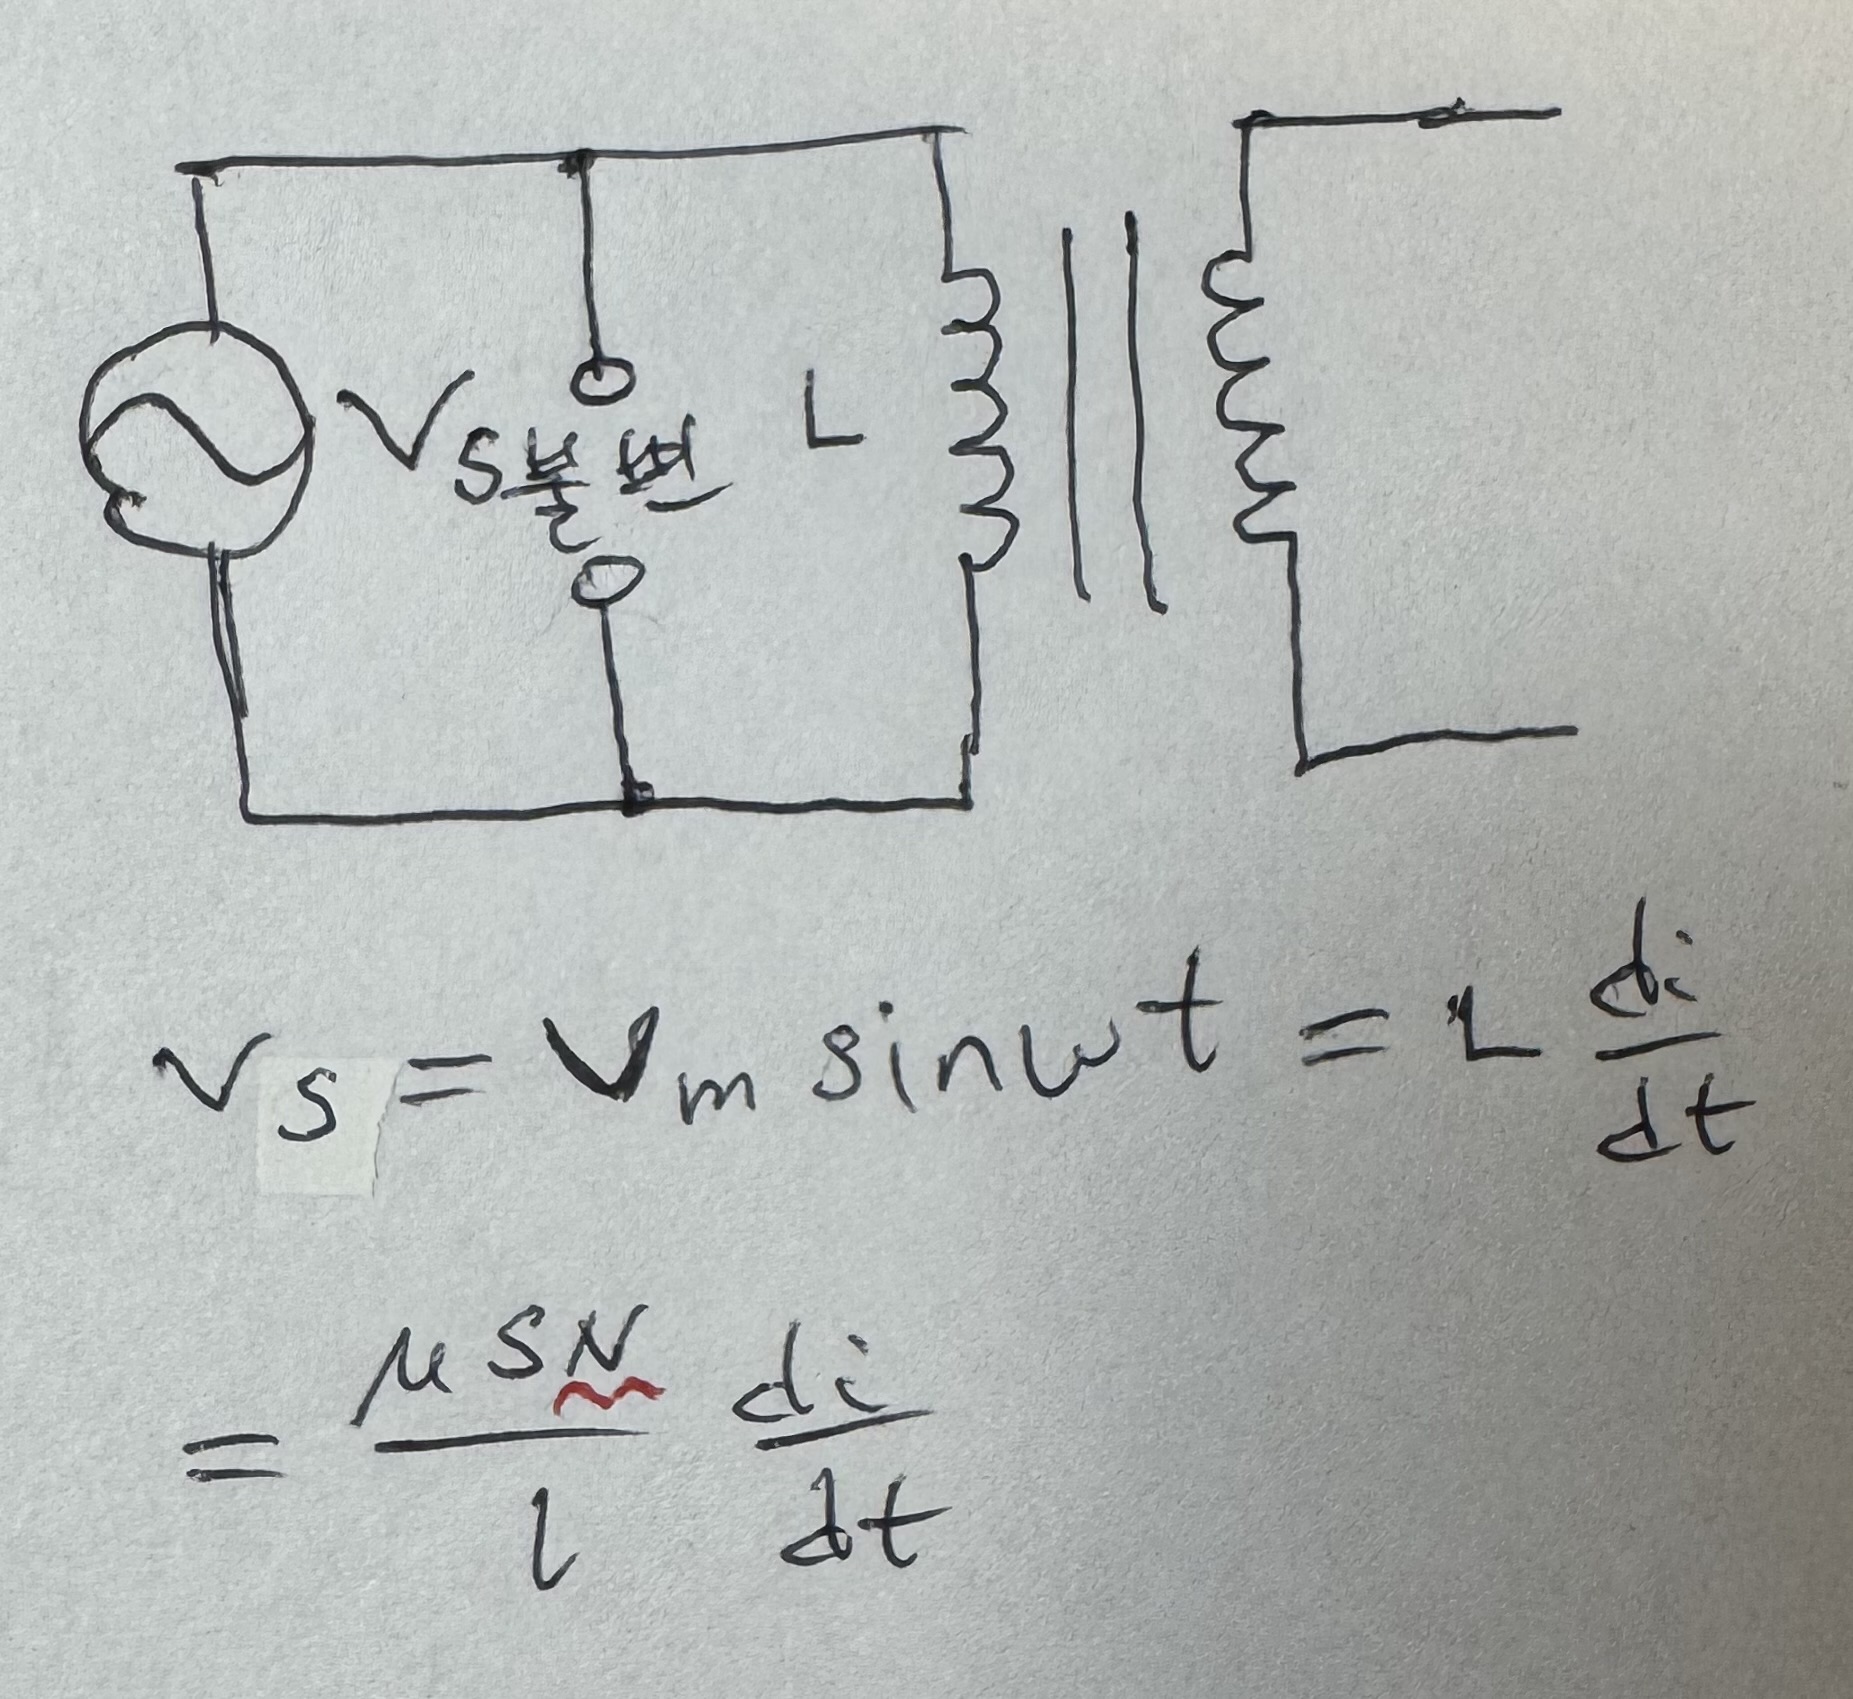 Vs불변 L
vs = Vm sinωt = L di/dt
= μSN/l di/dt